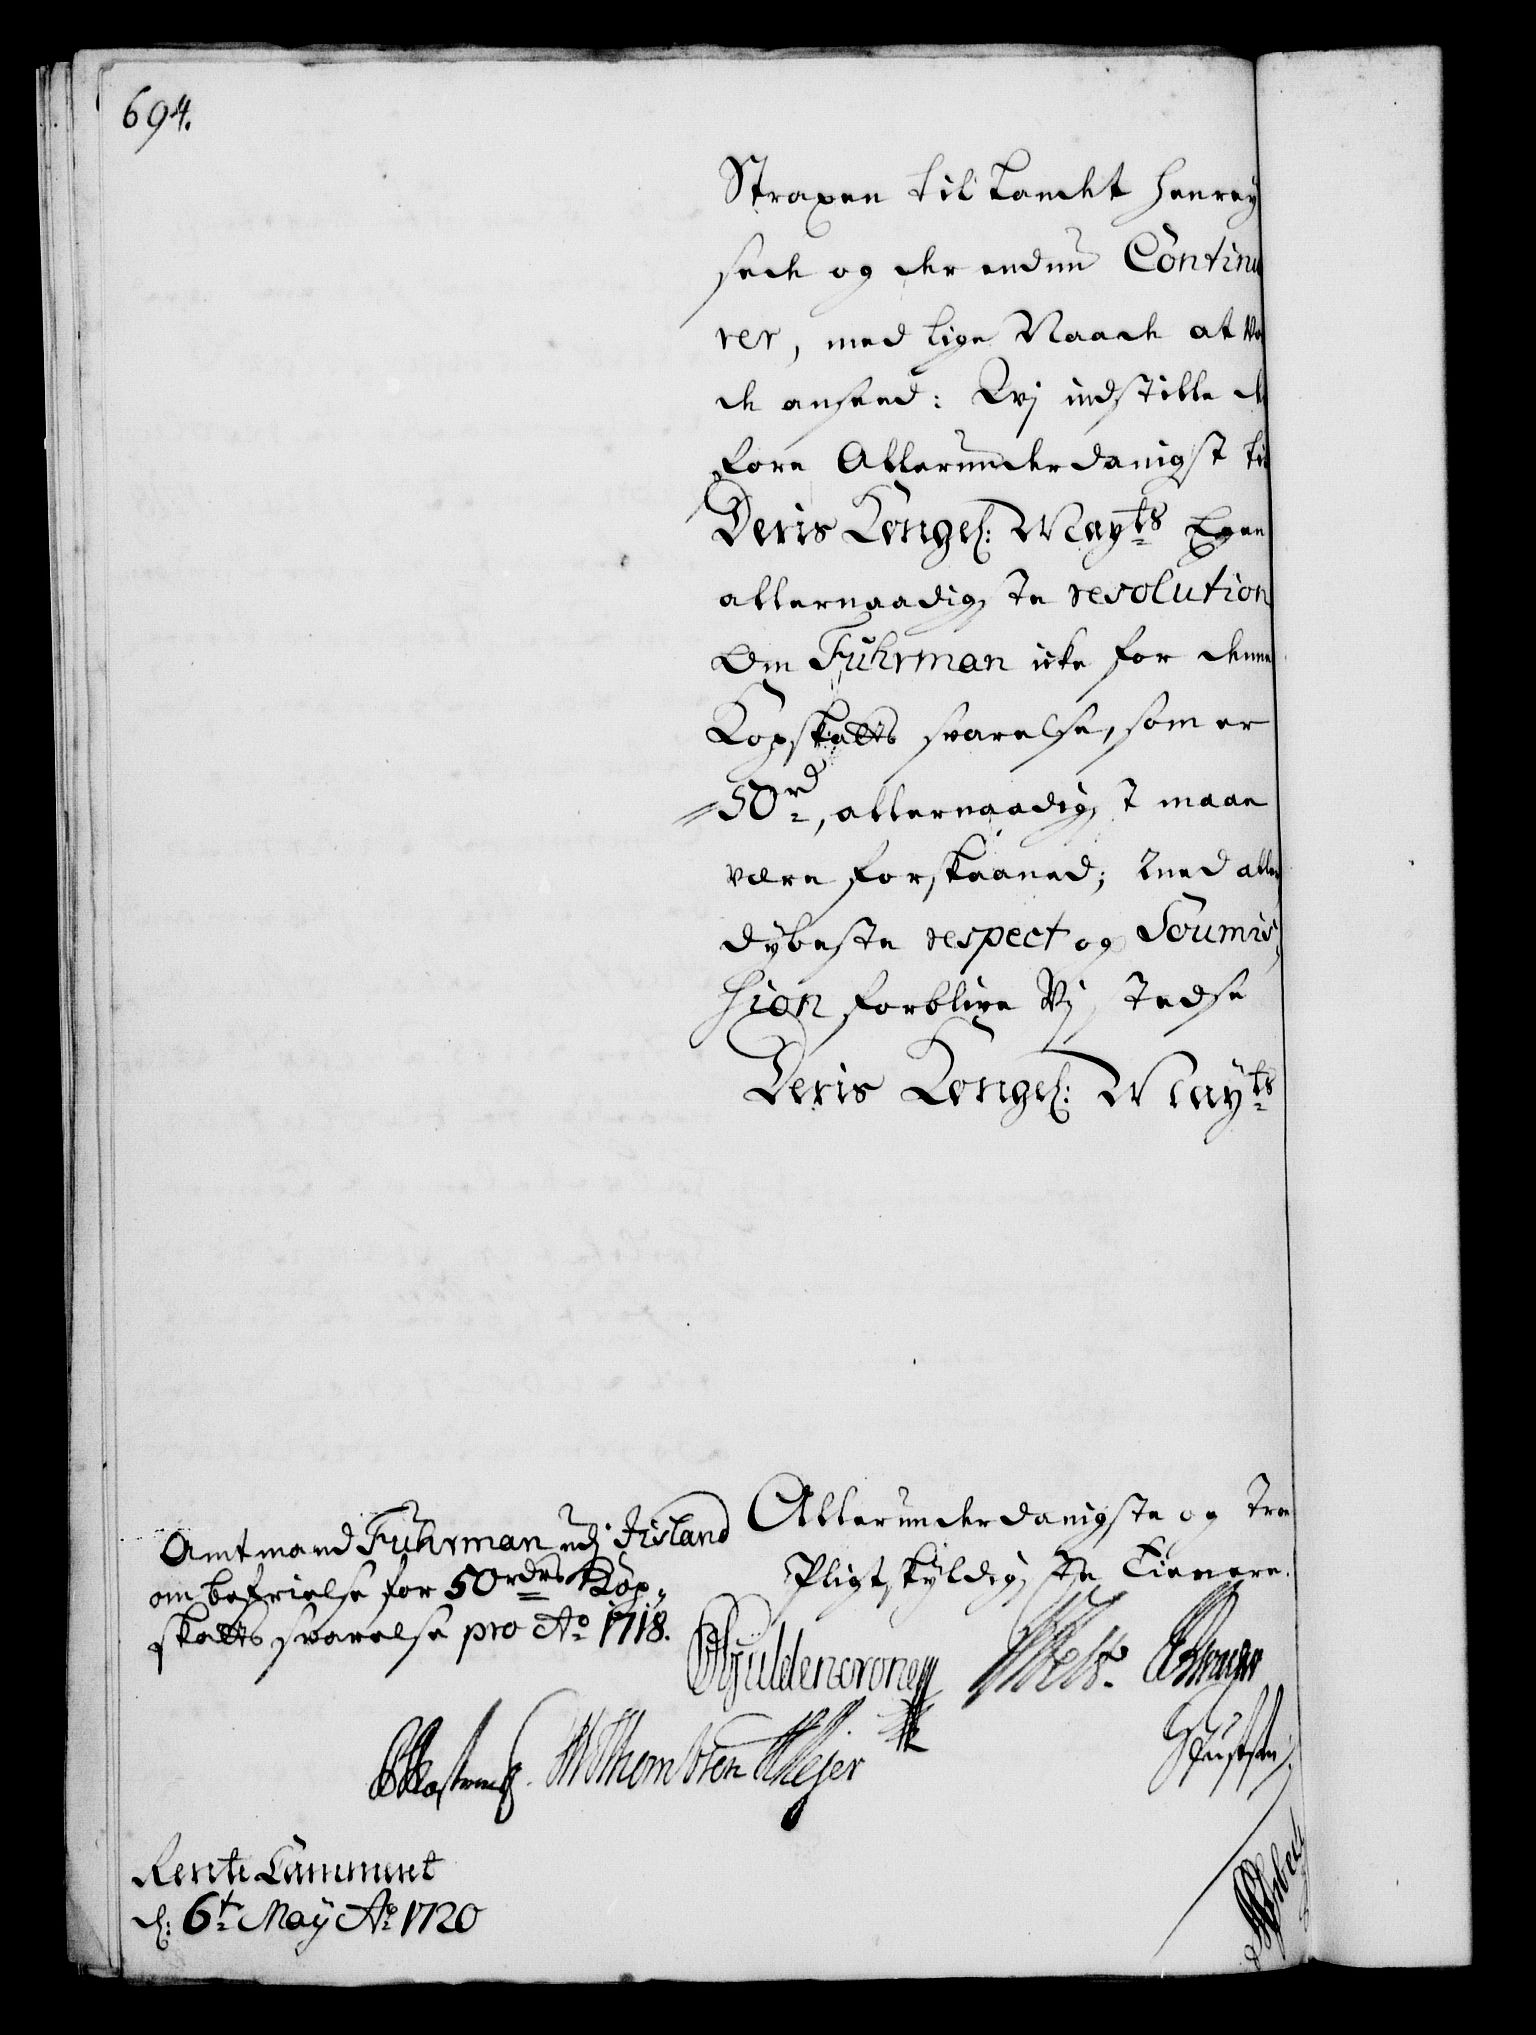 694.
Straxen til Landet henrey
sede og der endnu Continu
rer, med lige Naade at vor
de anseed: Kvj indstille de
fore Allerunderdanigst til
Deris Kongel: Mayts Egen
allernaadigste resolution
Om Fuhrman icke for denne
Kopskatts svarelse, som er
50 rd, allernaadigst maae
være forskaaned; Med aller
dybeste respect og Soumis,
sion forblive Vj stedse
Deris Kongel: Mayts
Allerunderdanigste og troe
Pligtskyldigste Tienere.
Amtmand Fuhrman udj Iisland
om befrielse for 50 rdrs Kop,,
skatts svarelse pro Ao 1718.
Gyldencrone
WThomsen Meyer
Rente Cammeret
d: 6t May Ao 1720